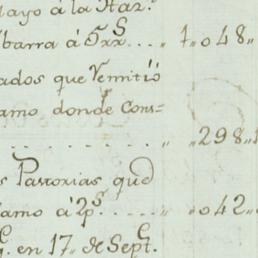 Mayo á la Haz.ª
Ybarra á 5 rs.... " 1 " 048 "
ados que Remitió
amo donde Cons=
. . . . . . . . " " 298 "
s Pastorias que
amo á 2 p.s ..... " " 042 "
g. en 17,, de Sept.e